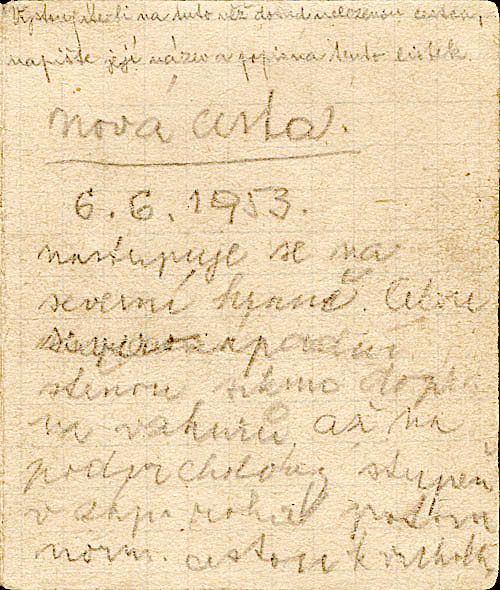 Vystoupíte-li na tuto věž dosud nelezenou cestou,
napište její název a popis na tento lístek.
Nová cesta.
6. 6. 1953.
nastupuje se na
severní hraně. Celou
stěnou šikmo
vzhůru až na
podvrcholový stupeň
v záp. potom
norm. cestou k vrcholu